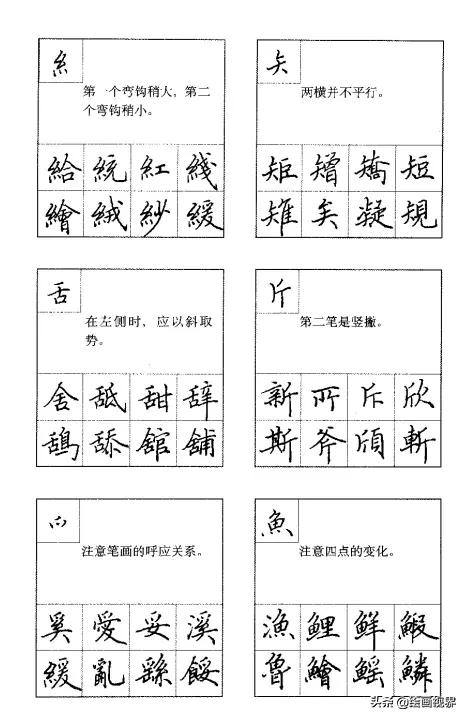 糹
第一个弯钩稍大，第二
个弯钩稍小。
給統紅綫
繪絨紗緩
矢
两横并不平行。
矩矰矯短
雉矣凝規
舌
在左侧时，应以斜取
势。
舍舐甜辞
鴰舔舘舖
斤
第二笔是竖撇。
新所斥欣
斯斧頎斬
爫
注意笔画的呼应关系。
奚愛妥溪
緩亂繇餒
魚
注意四点的变化。
漁鯉鮮鰕
魯鱠鰩鱗
头条 @绘画视界